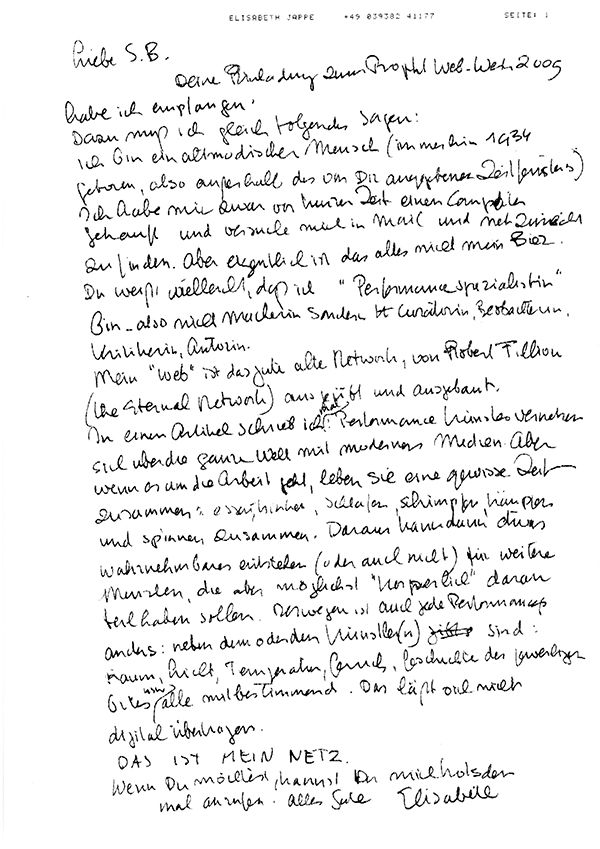 ELISABETH JAPPE +49 039382 41177 SEITE: 1
Liebe S.B.
Deine Einladung zum Prophil Web-Wesen 2009
habe ich empfangen.
Dazu muß ich gleich folgendes sagen:
ich bin ein altmodischer Mensch (immerhin 1934
geboren, also außerhalb des von Dir angegebenen Zeitfensters)
Ich habe mir zwar vor kurzer Zeit einen Computer
gekauft und versuche mich in Mail und Net zurecht
zu finden. Aber eigentlich ist das alles nicht mein Bier.
Du weißt vielleicht, daß ich "Performancespezialistin"
bin - also nicht Macherin sondern Kuratorin, Beobachterin,
Kritikerin, Autorin.
Mein "Web" ist das gute alte Network, von Robert Fillion
(the Eternal Network) ausgeübt und ausgebaut.
In einem Artikel schrieb ich mal: Performance Künstler vernetzen
sich über die ganze Welt mit modernen Medien. Aber
wenn es um die Arbeit geht, leben sie eine gewisse Zeit
zusammen: essen, trinken, schlafen, schimpfen, kämpfen
und spinnen zusammen. Daraus kann dann etwas
wahrnehmbares entstehen (oder auch nicht) für weitere
Menschen, die aber möglichst "körperlich" daran
teil haben sollen. Deswegen ist auch jede Performance
anders: neben dem oder den Künstler(n) sind:
Raum, Licht, Temperatur, Geruch, Geschichte des jeweiligen
Ortes usw alle mitbestimmend. Das läßt sich nicht
digital übertragen.
DAS IST MEIN NETZ.
Wenn Du möchtest, kannst Du mich
mal anrufen. Alles Gute Elisabeth